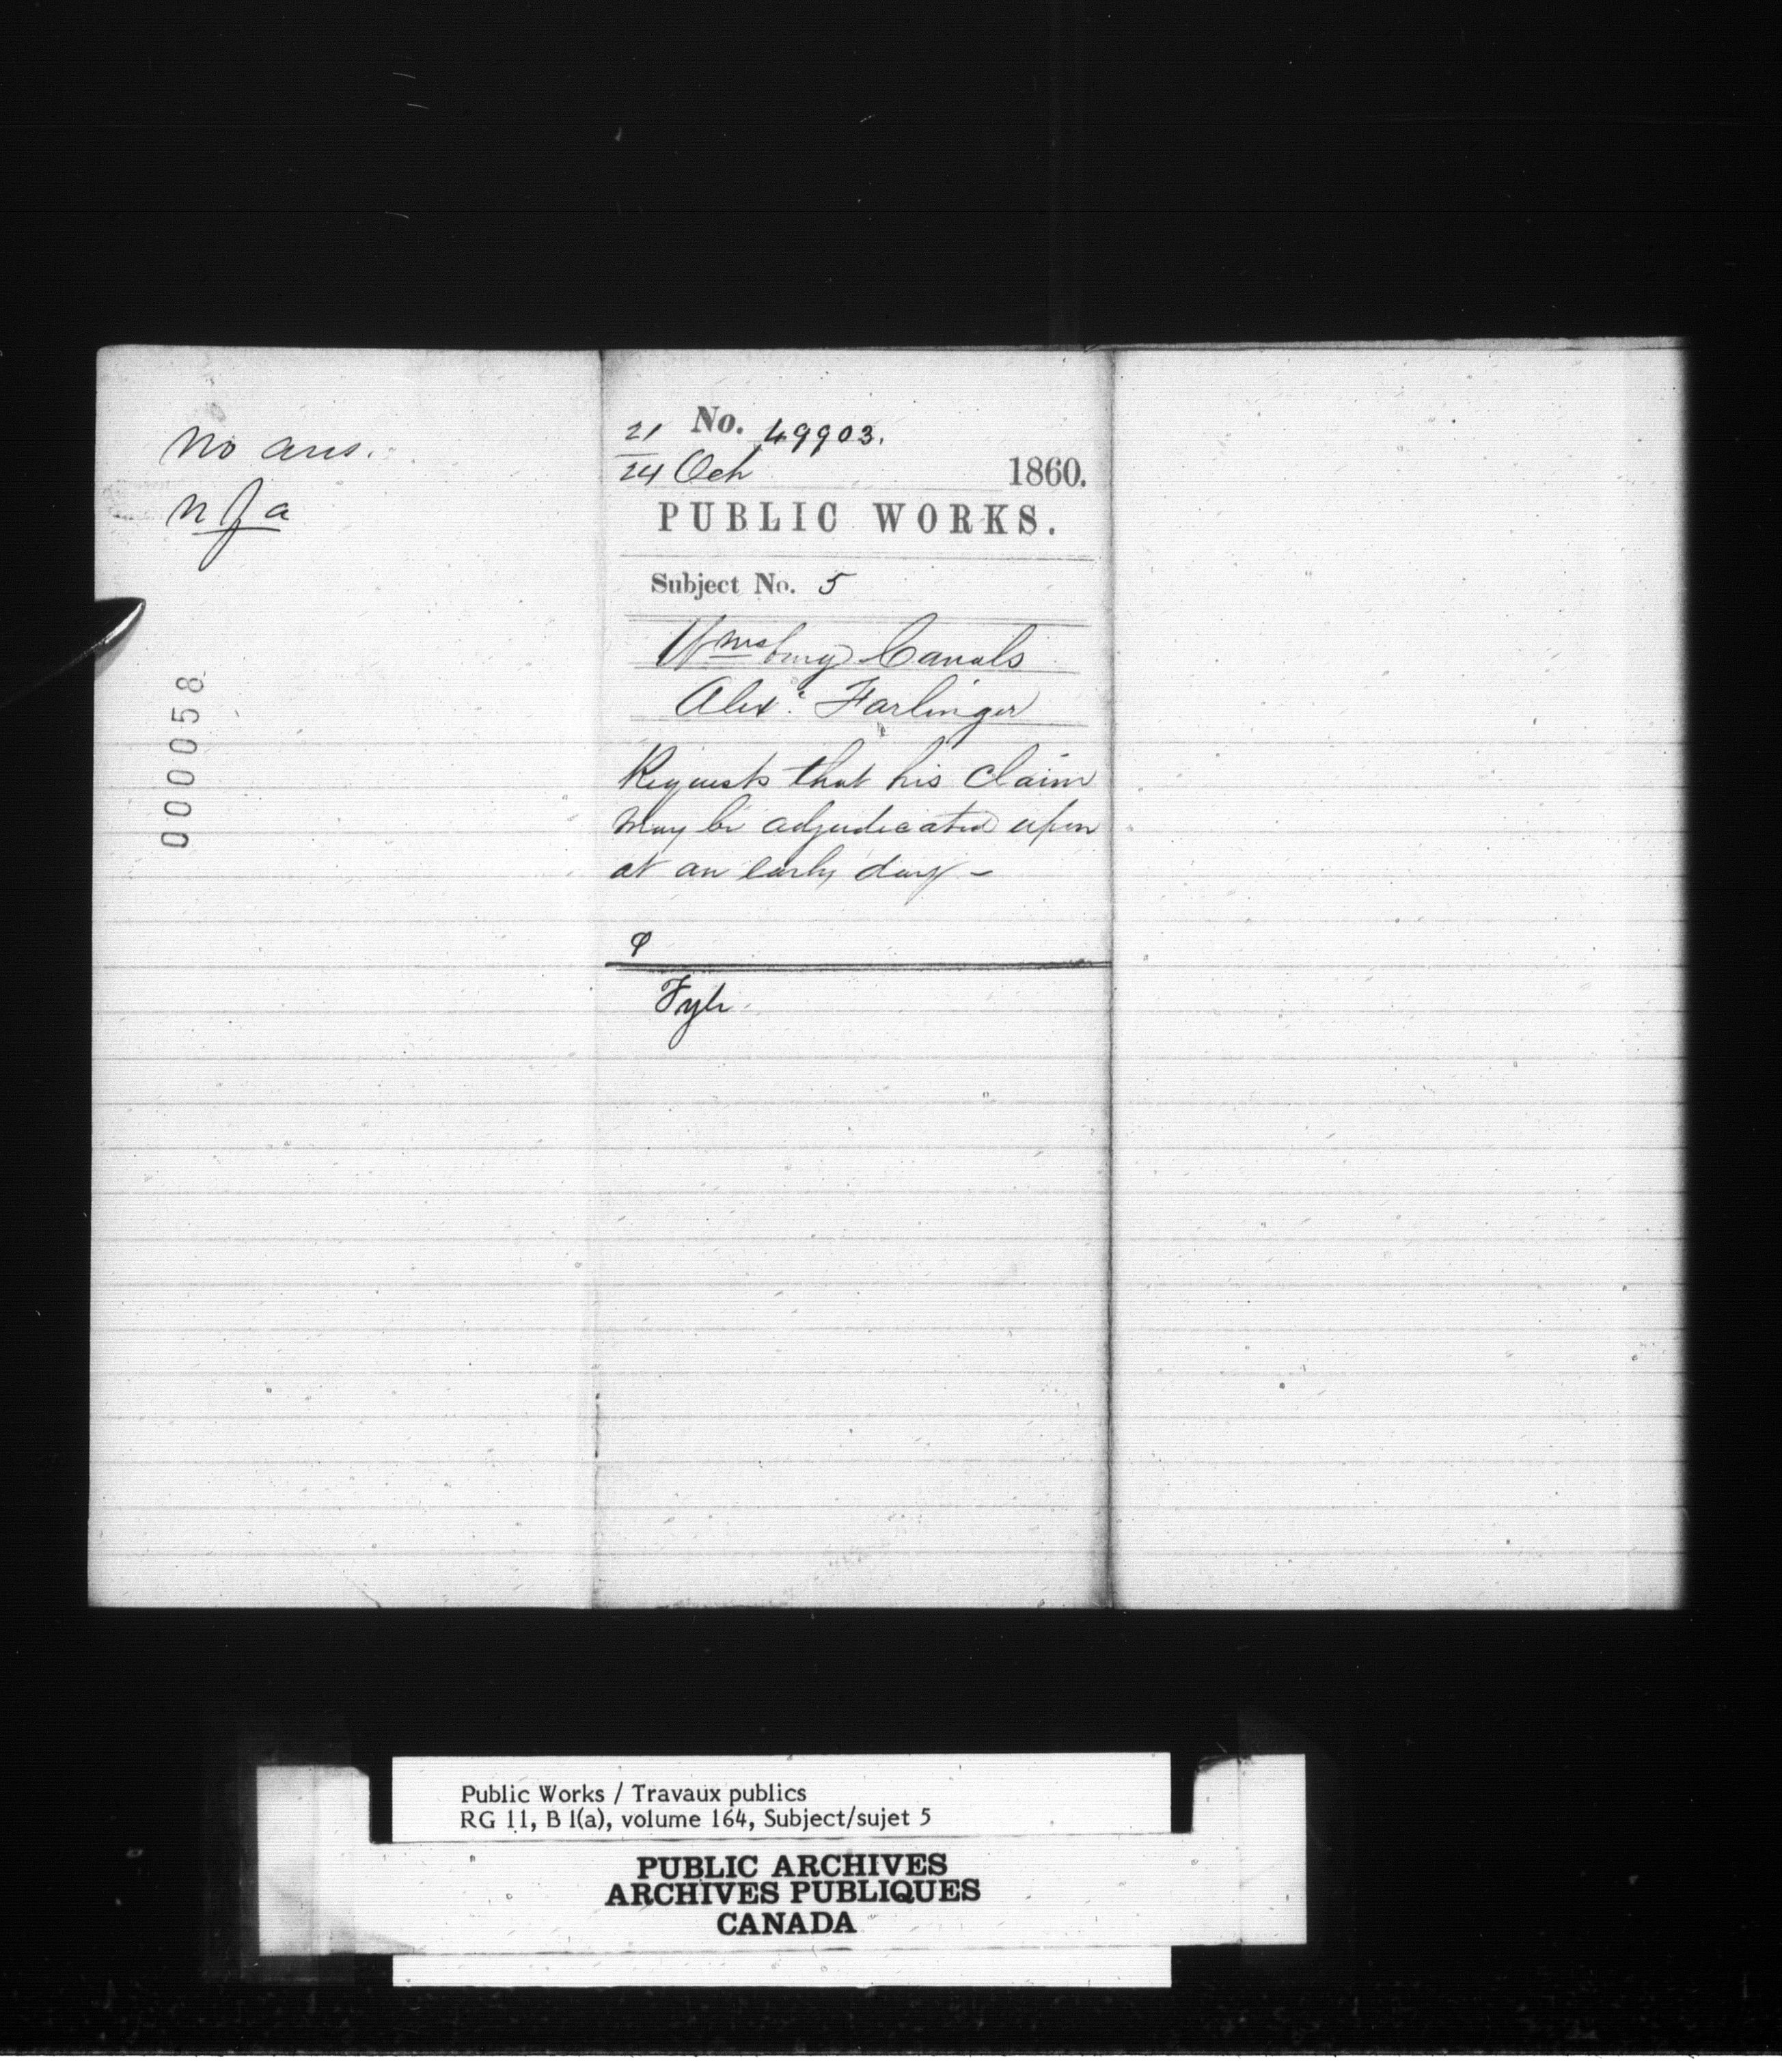 no ans.
n f a
000058
No. 49903.
21
24 Oct 1860.
PUBLIC WORKS.
Subject No. 5
Wmsburg Canals
Alexr. Farlinger
Requests that his claim
may be adjudicated upon
at an early day -
Fyle
Public Works / Travaux publics
RG 11, B 1(a), volume 164, Subject/sujet 5
PUBLIC ARCHIVES
ARCHIVES PUBLIQUES
CANADA